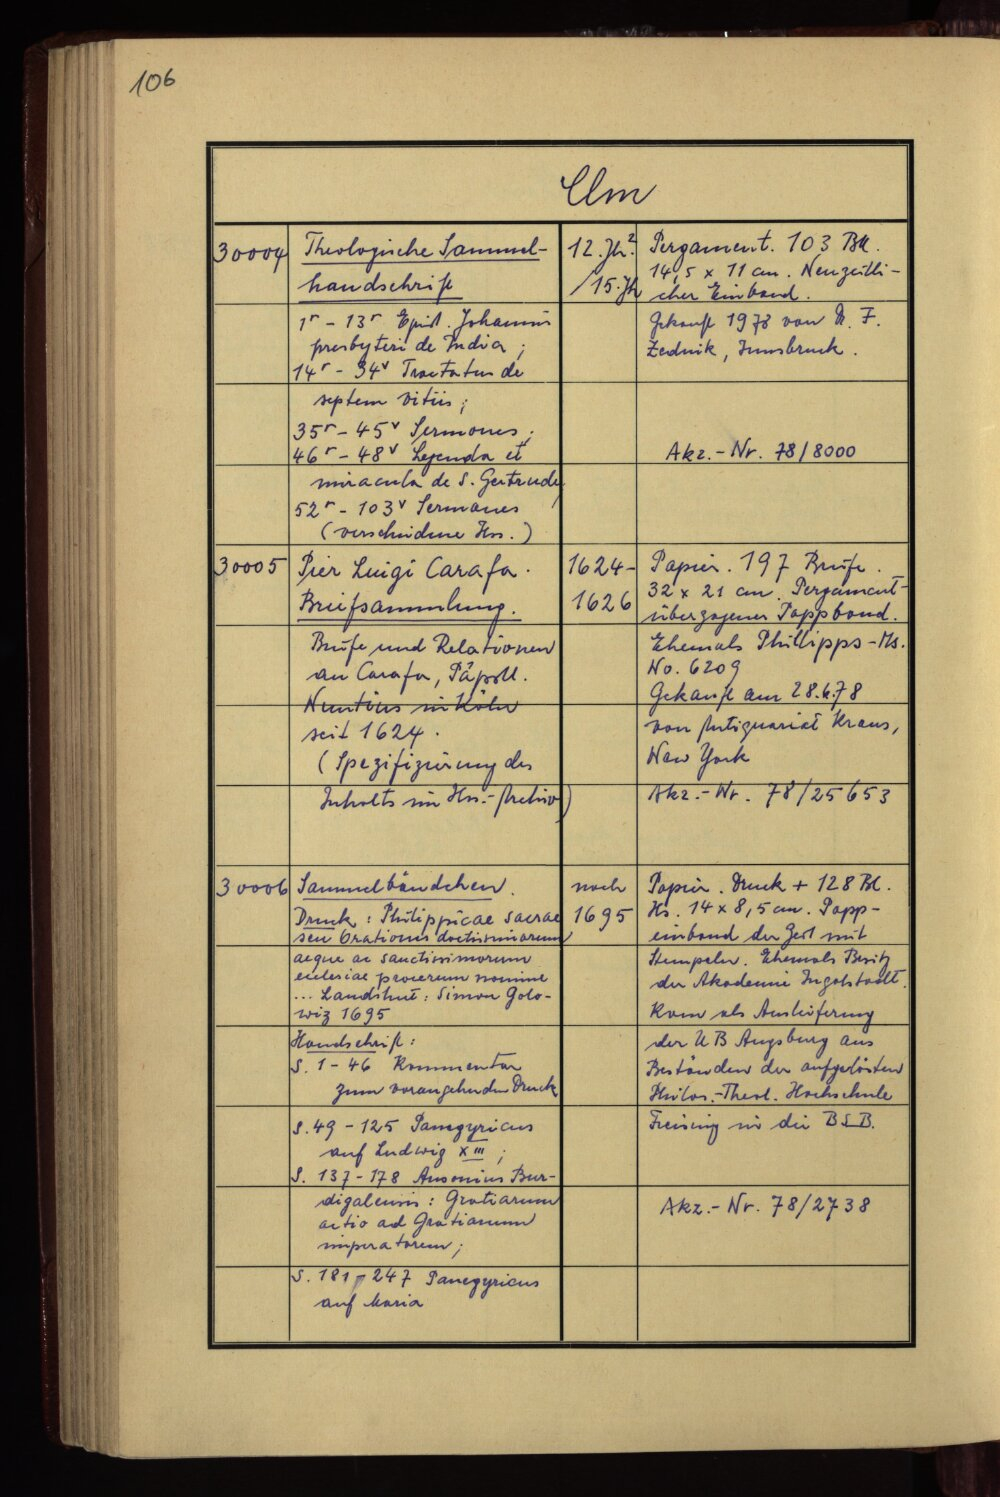 106
Clm
30004
Theologische Sammel-
handschrift
1r - 13r Epist. Johannis
presbyteri de India ;
14r - 34v Tractatus de
septem vitiis ;
35r - 45v Sermones ;
46r - 48v Legenda et
miracula de S. Gertrude
52r - 103v Sermones
(verschiedene Hss.)
12. Jh.2
/15. Jh
Pergament. 103 Bll.
14,5 x 11 cm. Neuzeitli-
cher Einband.
Gekauft 1978 von F.
Zednik, Innsbruck.
Akz.-Nr. 78/8000
30005
Pier Luigi Carafa.
Briefsammlung.
Briefe und Relationen
an Carafa, Päpstl.
Nuntius in Köln
seit 1624.
(Spezifizierung des
Inhalts im Hss.-Archiv)
1624-
1626
Papier. 197 Briefe.
32 x 21 cm. Pergament-
überzogener Pappband.
Ehemals Phillipps-Ms.
No. 6209
Gekauft am 28.6.78
von Antiquariat Kraus,
New York
Akz.-Nr. 78/25653
30006
Sammelbändchen.
Druck : Philippicae sacrae
seu Orationis doctissimorum
aeque ac sanctissimorum
ecclesiae procerum nomine
... Landshut : Simon Golo-
wiz 1695
Handschrift :
S. 1 - 46 Kommentar
zum vorangehenden Druck
S. 49 - 125 Panegyricus
auf Ludwig XIII ;
S. 137 - 178 Ausonius Bur-
digalensis : Gratiarum
actio ad Gratianum
imperatorem ;
S. 181 - 247 Panegyricus
auf Maria
nach
1695
Papier. Druck + 128 Bl.
Hs. 14 x 8,5 cm. Papp-
einband der Zeit mit
Stempeln. Ehemals Besitz
der Akademie Ingolstadt.
Kam als Auslieferung
der UB Augsburg aus
Beständen der aufgelösten
Philos.-Theol. Hochschule
Freising in die BSB.
Akz.-Nr. 78/2738